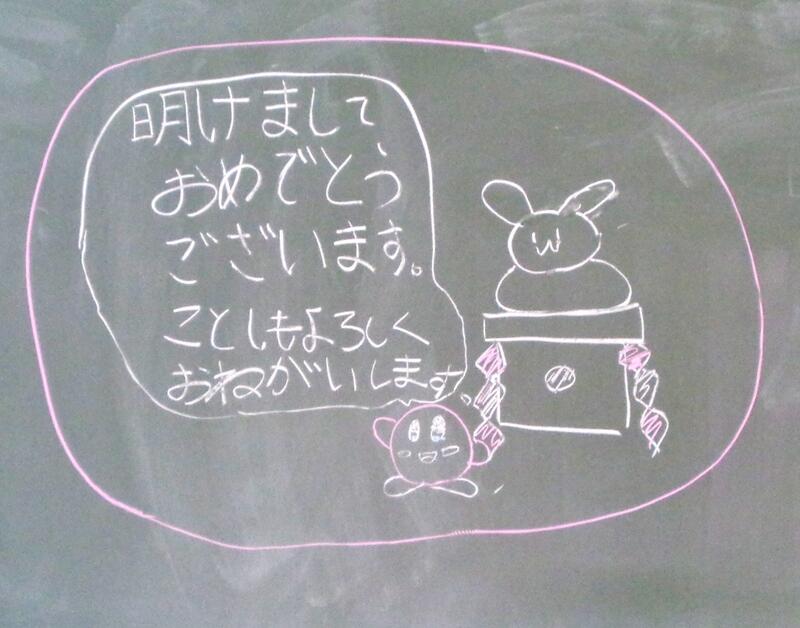 明けまして
おめでとう
ございます。
ことしもよろしく
おねがいします。